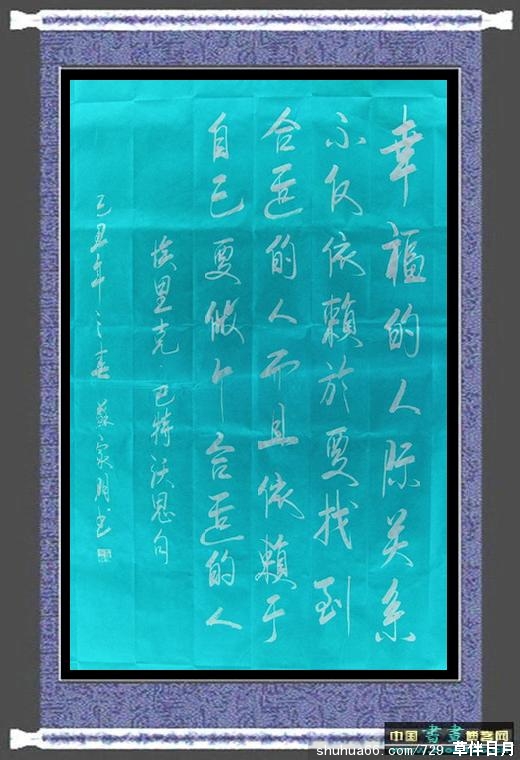 幸福的人际关系
不仅依赖於要找到
合适的人而且依赖于
自己要做个合适的人
埃里克·巴特沃思句
己丑年之春 苏家明书
中国書畫博客网
shuhua66.com/729 草伴日月